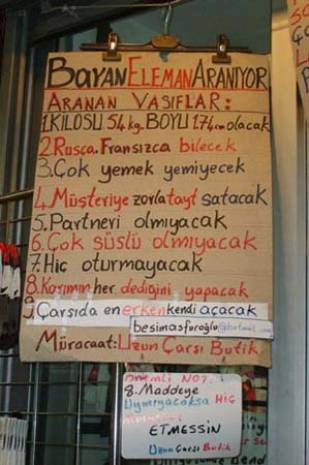 BAYAN ELEMAN ARANIYOR
ARANAN VASIFLAR:
1.KILOSU 54kg. BOYU 1.74cm olacak
2.Rusça.Fransızca bilecek
3.Çok yemek yemiyecek
4.Müşteriye zorla tayt satacak
5.Partneri olmıyacak
6.Çok süslü olmıyacak
7.Hiç oturmayacak
8.Karımın her dediğini yapacak
9.Çarşıda en erken kendi açacak
besimasfuroglu@hotmail.com
Müracaat:Uzun Çarşı Butik
önemli NOT.
8.Maddeye
Uymıyacaksa Hiç
ETMESSİN
Uzun Çarşı Butik